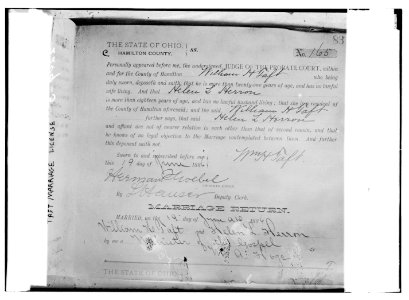 TAFT MARRIAGE LICENSE
83
THE STATE OF OHIO,
HAMILTON COUNTY. } ss.
No. 165
Personally appeared before me, the undersigned, JUDGE OF THE PROBATE COURT, within
and for the County of Hamilton William H Taft who being
duly sworn, deposeth and saith, that he is more than twenty one years of age, and has no lawful
wife living. And that Helen L Herron
is more than eighteen years of age, and has no lawful husband living; that she is a resident of
the County of Hamilton aforesaid; and the said William H Taft
further says, that said Helen L Herron
and affiant are not of nearer relation to each other than that of second cousin, and that
he knows of no legal objection to the Marriage contemplated between them. And further
this deponent saith not.
Wm H Taft
Sworn to and subscribed before me,
this 19 day of June 1886
Herman P Goebel
By L Hauser Deputy Clerk.
MARRIAGE RETURN.
MARRIED, on the 19 day of June A.D. 1886
William H. Taft and Helen L. Herron
by me a Gospel
THE STATE OF OHIO